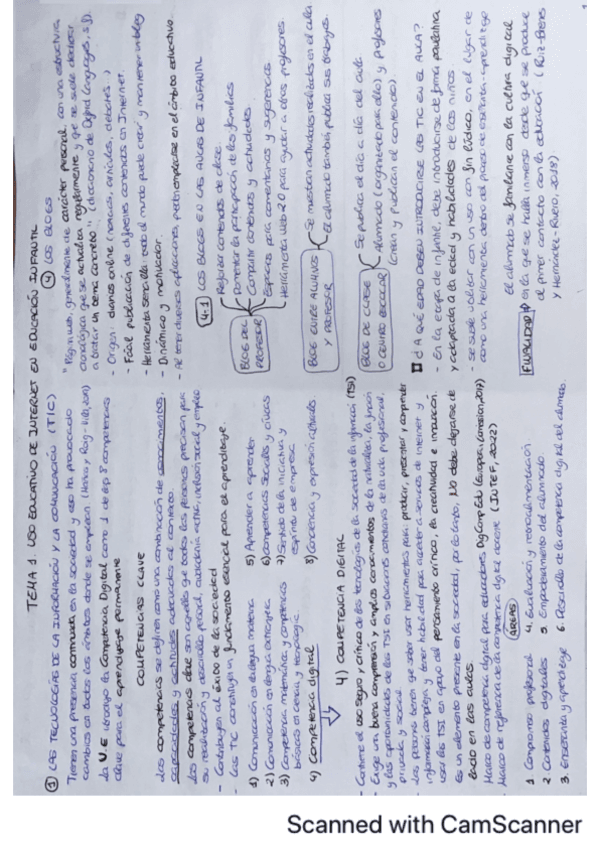 TEMA 1. USO EDUCATIVO DE INTERNET EN EDUCACIÓN INFANTIL
1 LAS TECNOLOGÍAS DE LA INFORMACIÓN Y LA COMUNICACIÓN (TIC)
Tienen una presencia continuada en la sociedad y ello ha provocado
cambios en todos los ámbitos donde se emplean
La U.E. introdujo la Competencia Digital como 1 de las 8 competencias
clave para el aprendizaje permanente
COMPETENCIAS CLAVE
Las competencias se definen como una combinación de conocimientos,
capacidades y actitudes adecuadas al contexto.
Las competencias clave son aquellas que todas las personas precisan para
su realización y desarrollo personal, ciudadanía activa, inclusión social y empleo
- Contribuyen al éxito de la sociedad
- Las TIC constituyen un fundamento esencial para el aprendizaje.
1) Comunicación en lengua materna
2) Comunicación en lengua extranjera
3) Competencia matemática y competencias
básicas en ciencia y tecnología
4) Competencia digital
5) Aprender a aprender
6) Competencias sociales y cívicas
7) Sentido de la iniciativa y
espíritu de empresa
8) Conciencia y expresión culturales
4) COMPETENCIA DIGITAL
- Contiene el uso seguro y crítico de las tecnologías de la sociedad de la información (TSI)
- Exige una buena comprensión y amplios conocimientos de la naturaleza, la función
y las oportunidades de las TSI en situaciones cotidianas de la vida profesional,
privada y social.
- Las personas tienen que saber usar herramientas para producir, presentar y comprender
información compleja y tener habilidad para acceder a servicios de Internet y
usar las TSI en apoyo del pensamiento crítico, la creatividad e innovación.
Es un elemento presente en la sociedad, por lo tanto, no debe dejarse de
lado en las aulas
Marco de competencia digital para educadores DigCompEdu (European Comission, 2017)
Marco de referencia de la competencia digital docente (INTEF, 2022)
ÁREAS
1. Compromiso profesional
2. Contenidos digitales
3. Enseñanza y aprendizaje
4. Evaluación y retroalimentación
5. Empoderamiento del alumnado
6. Desarrollo de la competencia digital del alumnado.
4 LOS BLOGS
"Página web, generalmente de carácter personal, con una estructura
cronológica que se actualiza regularmente y que se suele dedicar
a tratar un tema concreto" (diccionario de Oxford Languages, s.f).
- Origen: diarios online (noticias, artículos, debates...)
- Fácil publicación de diferentes contenidos en Internet.
- Herramienta sencilla: todo el mundo puede crear y mantener un blog
- Dinámico y motivador.
- Al tener diversas aplicaciones, pueden emplearse en el ámbito educativo.
4.1 LOS BLOGS EN LAS AULAS DE INFANTIL
BLOG DEL
PROFESOR
contenidos de clase.
Fomentar la participación de las familias
Compartir contenidos y actividades
Espacios para comentarios y sugerencias
Herramienta Web 2.0 para ayudar a otros profesores
BLOG ENTRE ALUMNOS
Y PROFESOR
Se muestran actividades realizadas en el aula
El alumnado también publicar sus trabajos.
BLOG DE CLASE
O CENTRO ESCOLAR
Se publica el día a día del aula
Alumnado (organizarlo por ello) y profesores
(crean y publican el contenido).
¿A QUÉ EDAD DEBEN INTRODUCIRSE LAS TIC EN EL AULA?
- En la etapa de infantil, debe introducirse de forma paulatina
y adaptada a la edad y habilidades de los niños.
- Se suele utilizar con un uso con fin lúdico, en el lugar de
como una herramienta dentro del proceso de enseñanza-aprendizaje
FINALIDAD
El alumnado se familiarice con la cultura digital
en la que se halla inmerso desde que se produce
el primer contacto con la educación
Scanned with CamScanner